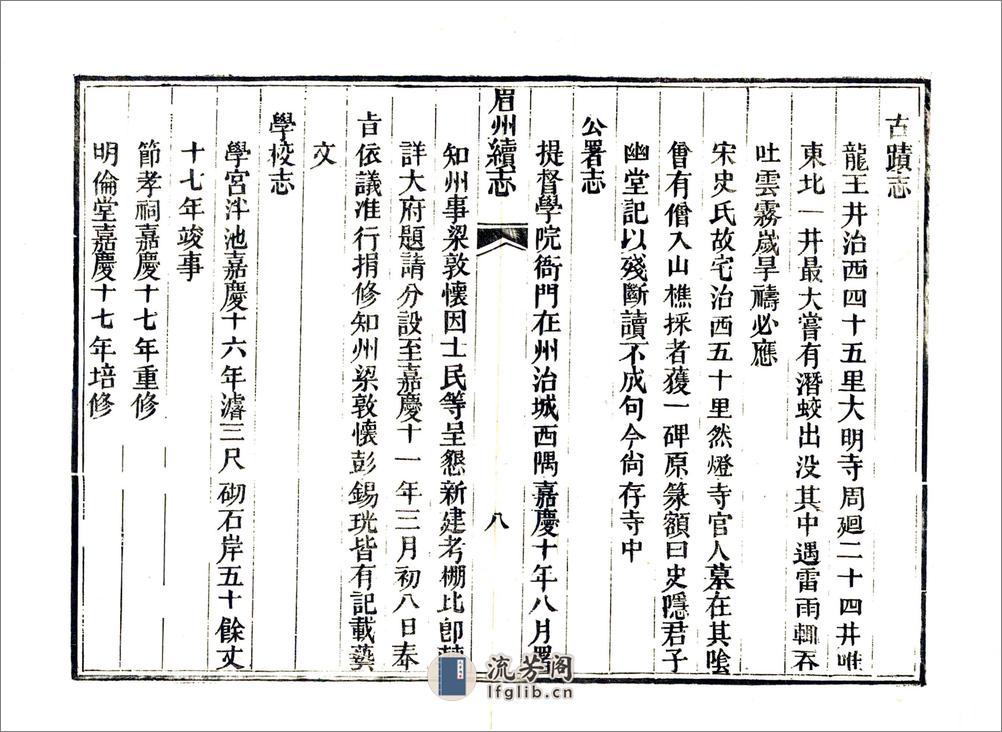 古蹟志
龍王井治西四十五里大明寺周廻二十四井唯
東北一井最大嘗有潛蛟出没其中遇雷雨輒吞
吐雲霧歲旱禱必應
宋史氏故宅治西五十里然燈寺官人墓在其陰
曾有僧入山樵採者獲一碑原篆額曰史隱君子
幽堂記以殘斷讀不成句今尚存寺中
公署志
提督學院衙門在州治城西隅嘉慶十年八月署
眉州續志
八
知州事梁敦懷因士民等呈懇新建考棚比卽
詳大府題請分設至嘉慶十一年三月初八日奉
旨依議准行捐修知州梁敦懷彭錫珖皆有記載藝
文
學校志
學宮泮池嘉慶十六年濬三尺砌石岸五十餘丈
十七年竣事
節孝祠嘉慶十七年重修
明倫堂嘉慶十七年培修
流芳阁
lfglib.cn